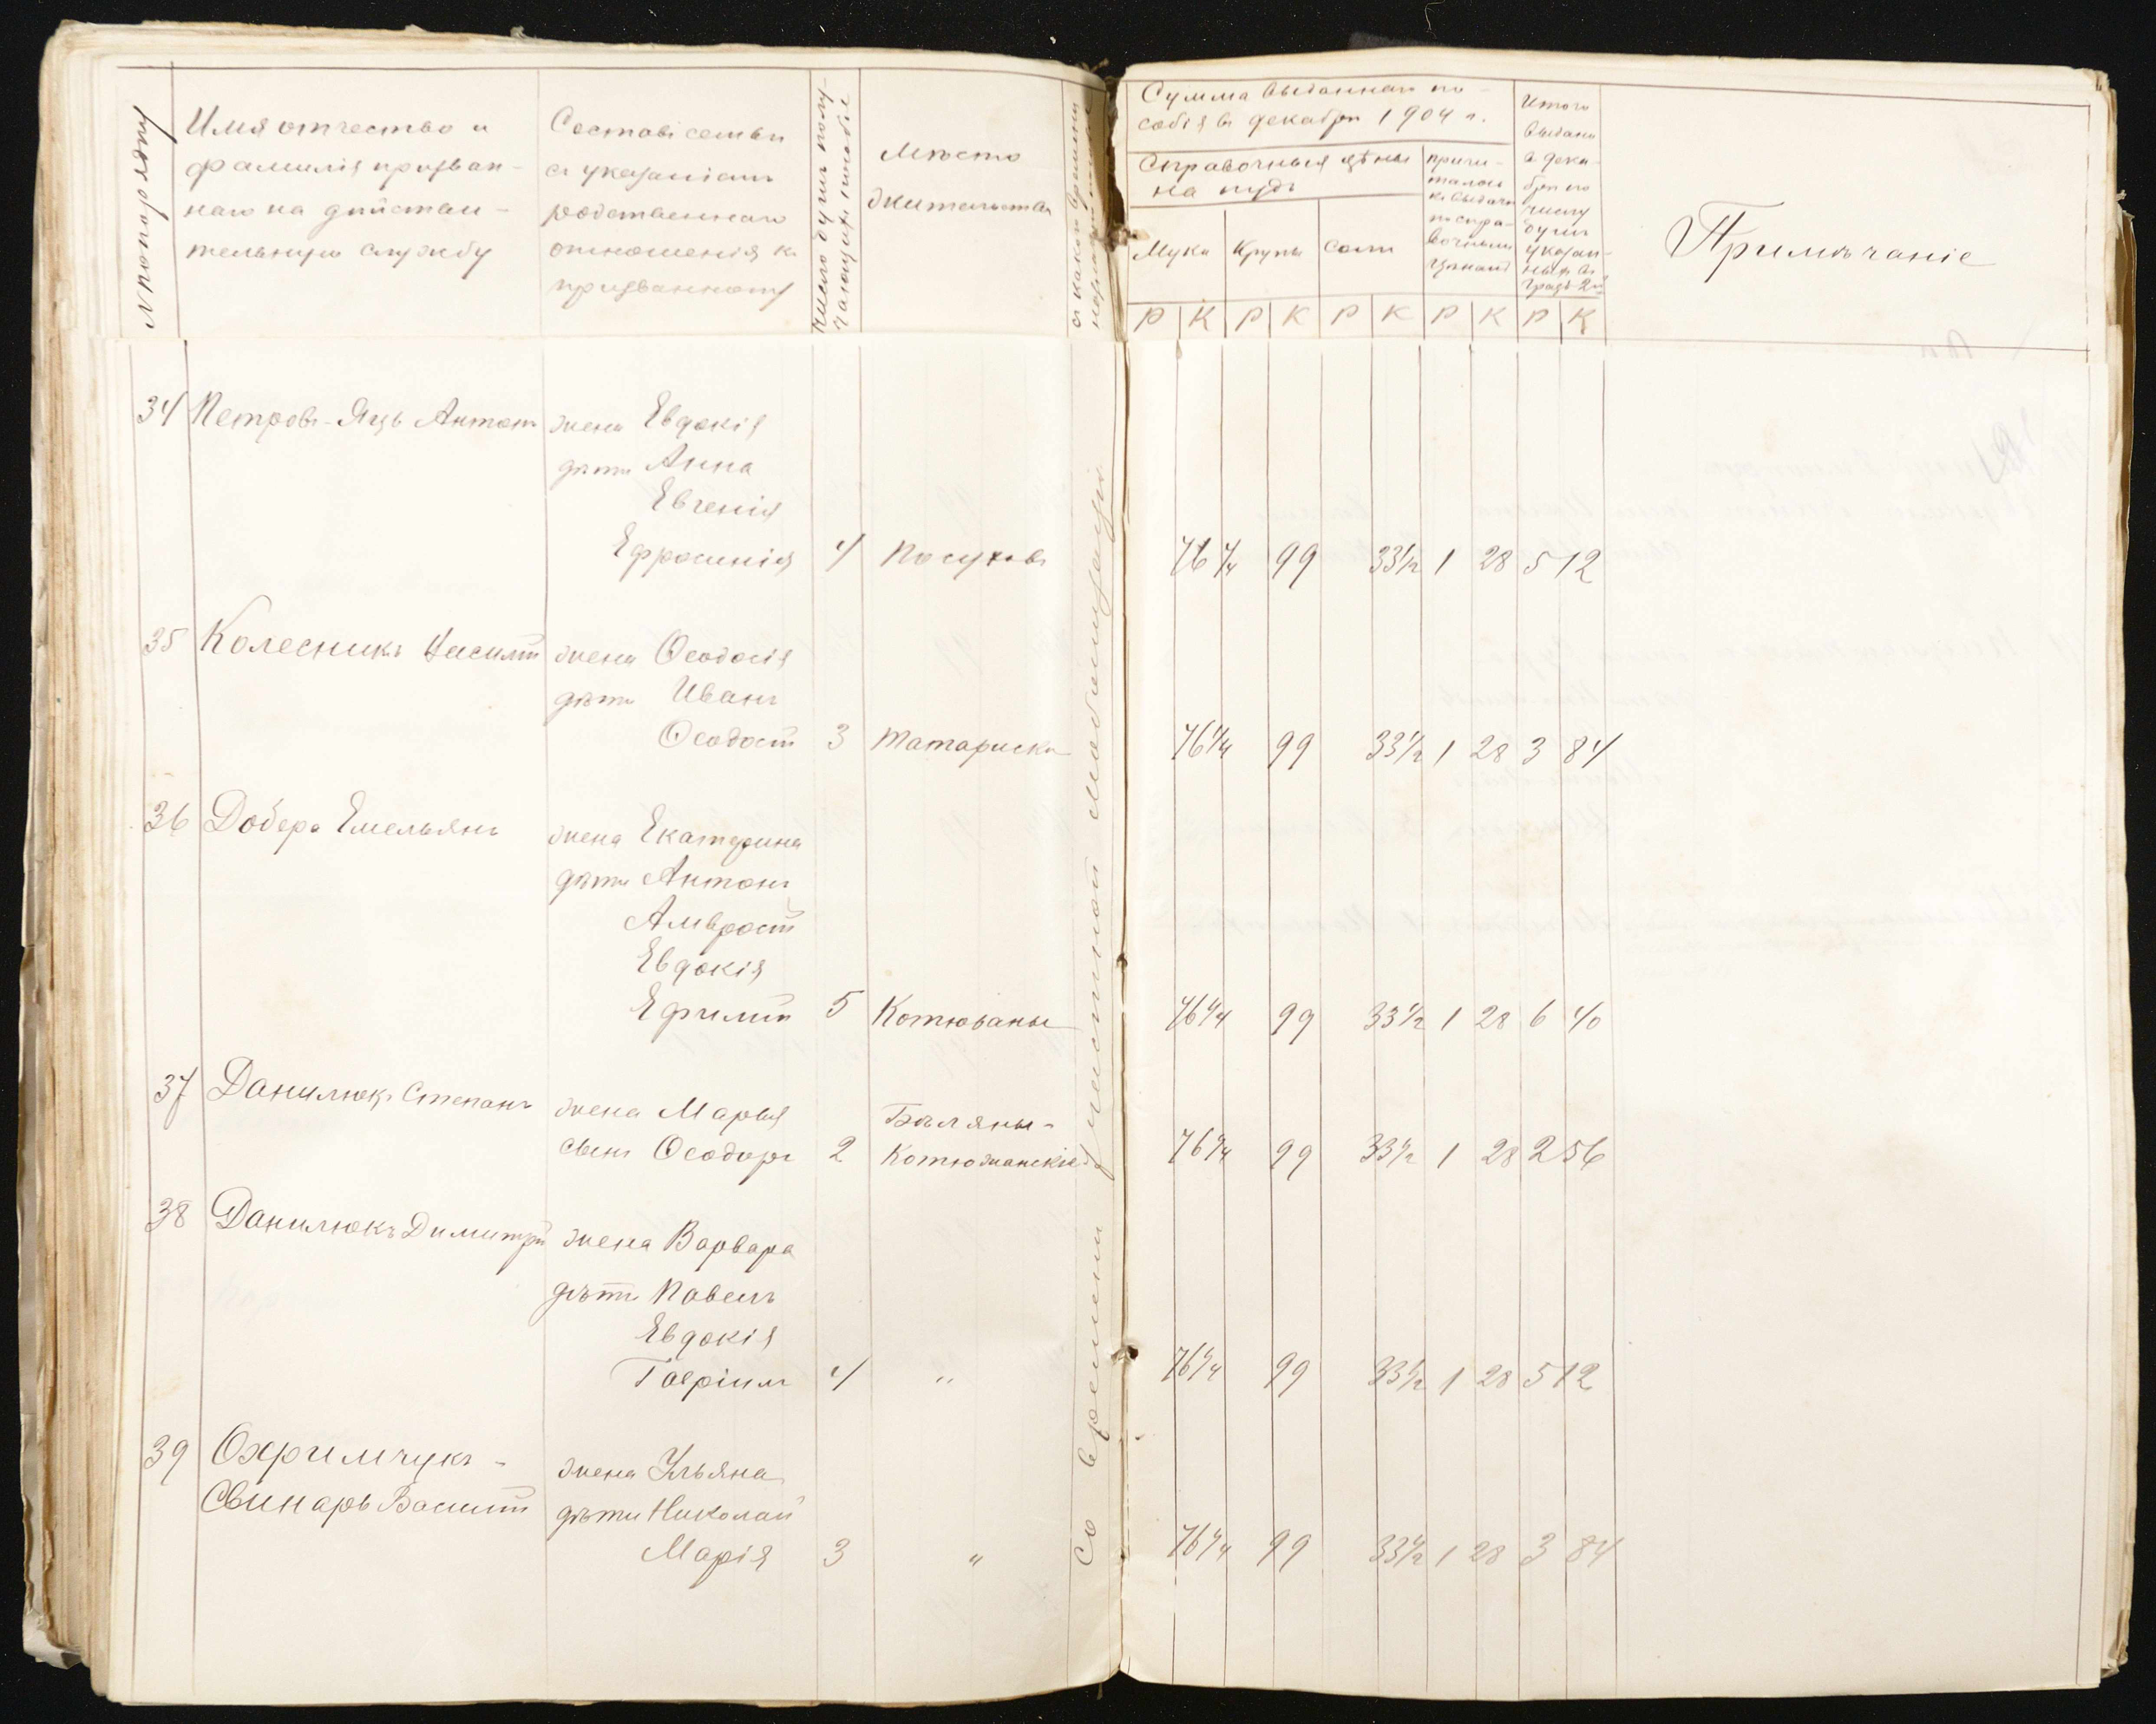 № по порядку
Имя отчество и
фамилія призван-
наго на дѣйстви-
тельную службу
Составъ семьи
съ указаніемъ
родственнаго
отношенія къ
призванному
Число душъ полу-
чающихъ пособіе
Мѣсто
жительства
съ какого времени
Сумма выданнаго по-
собія въ декабрѣ 1904 г.
Справочныя цѣны
на пудъ
Муки
Крупы
Соли
причи-
талось
къ выдачѣ
по спра-
вочнымъ
цѣнамъ
Итого
выдано
въ дека-
брѣ по
числу
душъ
указан-
ныхъ въ
графѣ 2й
Примѣчаніе
Р К Р К Р К Р К Р К
34 Петровъ-Яць Антонъ жена Евдокія
дѣти Анна
Евгенія
Ефросинія 4 Посуховъ 76 1/4 99 33 1/2 1 28 5 12
35 Колесникъ Василій жена Ѳеодосія
дѣти Иванъ
Ѳеодосій 3 Татариски 76 1/4 99 33 1/2 1 28 3 84
36 Добера Емельянъ жена Екатерина
дѣти Антонъ
Амвросій
Евдокія
Ефимій 5 Котюжаны 76 1/4 99 33 1/2 1 28 6 40
37 Данилюкъ Степанъ жена Марья Бѣляны-
сынъ Ѳеодоръ 2 Котюжанскіе 76 1/4 99 33 1/2 1 28 2 56
38 Данилюкъ Димитрій жена Варвара
дѣти Павелъ
Евдокія
Гавріилъ 4 " 76 1/4 99 33 1/2 1 28 5 12
39 Охримчукъ- жена Ульяна
Свинарь Василій дѣти Николай
Марія 3 " 76 1/4 99 33 1/2 1 28 3 84
Со времени частичной мобилизаціи